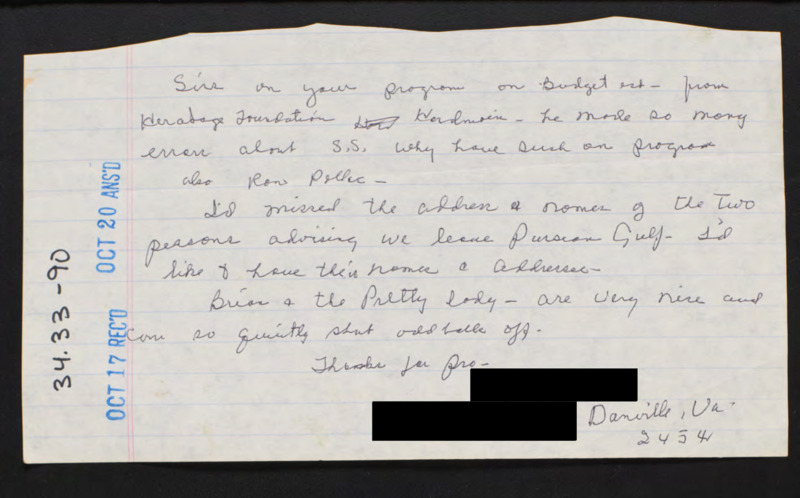 Sirs on your program on Budget ect - from
Heratage Foundation - he made so many
errors about S.S. why have such on program
also Ron
I'd missed the address & names of the two
peasons advising we leave Pursian Gulf - I'd
like to have their names & addresses -
Brian & the Pretty lady - are very nice and
can so quietly shut oddballs off.
Thanks for pro -
Danville, Va.
2454
34.33-90
OCT 17 REC'D
OCT 20 ANS'D